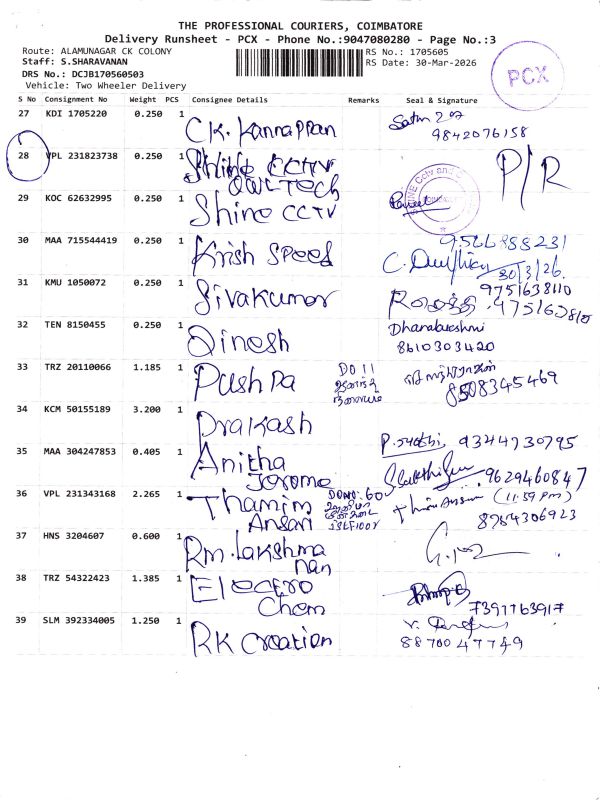 THE PROFESSIONAL COURIERS, COIMBATORE
Delivery Runsheet - PCX - Phone No.:9047080280 - Page No.:3
Route: ALAMUNAGAR CK COLONY
RS No.: 1705605
Staff: S.SHARAVANAN
RS Date: 30-Mar-2026
DRS No.: DCJB170560503
Vehicle: Two Wheeler Delivery
PCX
S No Consignment No Weight PCS Consignee Details Remarks Seal & Signature
27 KDI 1705220 0.250 1 CK. Kannappan
9842076158
28 VPL 231823738 0.250 1 Shine CCTV
OWL Tech
P/R
29 KOC 62632995 0.250 1 Shine CCTV
30 MAA 715544419 0.250 1 Krish Speed
9566888231
30/3/26.
31 KMU 1050072 0.250 1 Sivakumar
9751638110
32 TEN 8150455 0.250 1 Dinesh
Dhanalakshmi
8610303420
33 TRZ 20110066 1.185 1 Pushpa DO 11
8508345469
34 KCM 50155189 3.200 1 Prakash
35 MAA 304247853 0.405 1 Anitha
Jerome
9344730795
9629460847
36 VPL 231343168 2.265 1 Thamim
Ansari
DONO: 60
(11:59 PM)
8764306923
37 HNS 3204607 0.600 1 Rm. Lakshma
nan
38 TRZ 54322423 1.385 1 Electro
Chem
7397763917
39 SLM 392334005 1.250 1 RK Creation
8870047749